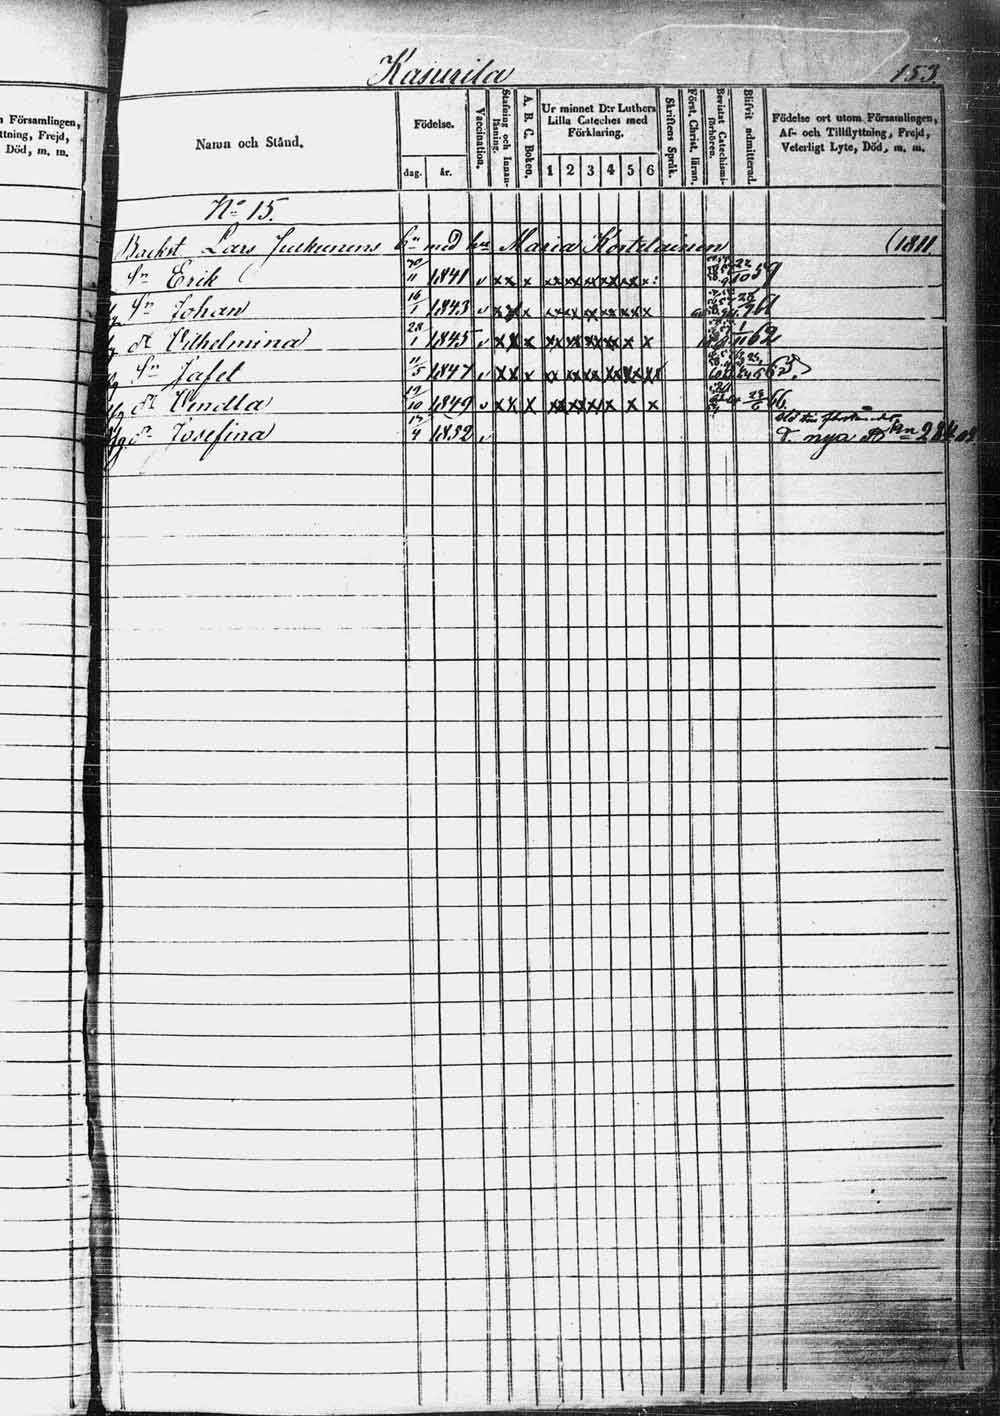 Kasurila
153.
Församlingen,
ttning, Frejd,
Död, m. m.
Namn och Stånd.
Födelse.
dag. år.
Vaccination.
Stafning och Innanläsning.
A. B. C. Boken.
Ur minnet D:r Luthers
Lilla Cateches med
Förklaring.
1 2 3 4 5 6
Skriftens Språk.
Först. Christ. läran.
Bevistat Catechismiförhören.
Blifvit admitterad.
Födelse ort utom Församlingen,
Af- och Tillflyttning, Frejd,
Veterligt Lyte, Död, m. m.
No 15.
Backst Lars Julkunens med hu Maria Kostilainen (1811.
Sn Erik 1841 v x x x x x x x x x 22/10 59
Sn Johan 16/1 1843 v x x x x x x x x x 61
dr Vilhelmina 28/1 1845 v x x x x x x x x x 1/11 62
Sn Jafet 11/5 1847 v x x x x x x x x x 63.
dr Vendla 19/10 1849 v x x x x x x x x x 66.
dr Josefina 17/4 1852 v
nya 284